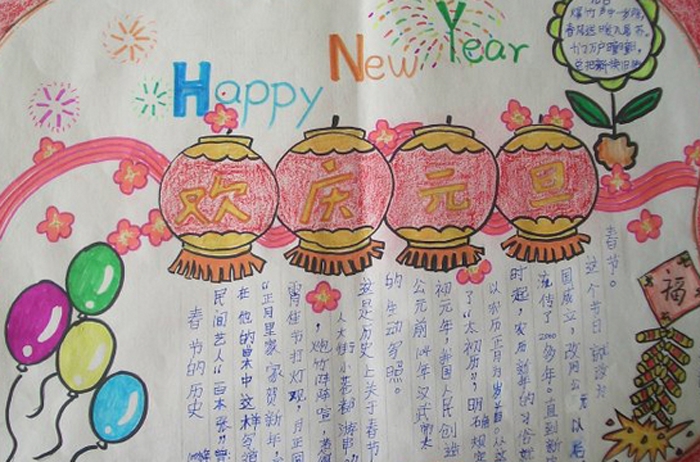 Happy New Year
欢庆元旦
元日
爆竹声中一岁除，
春风送暖入屠苏。
千门万户曈曈日，
总把新桃换旧符
福
春节。
这个节日
国成立，改用公元以后
流传了2000多年。直到新
时起，农历新年的习俗就
以农历正月为岁首。从这
了“太初历”，明确规定
初元年，我国人民创造
公元前104年汉武帝太
的生动写照。
这是历史上关于春节
人大街小巷都
，炮竹阵阵喧，
宵佳节打灯观，月正圆
“正月里家家贺新年，
在他的曲本中这样写道
民间艺人“百本张”
春节的历史